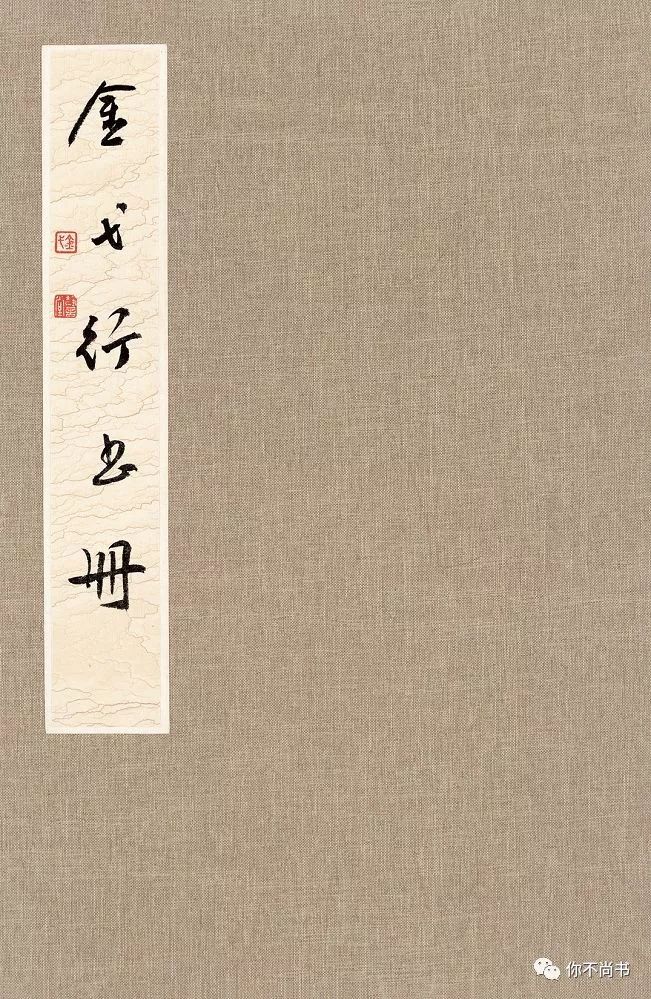 金戈行书册
金戈
你不尚书